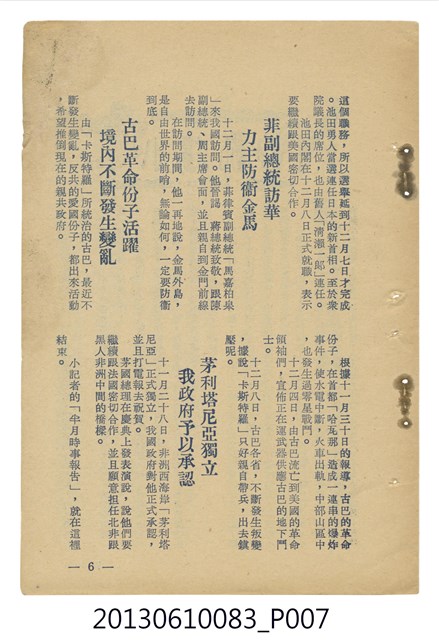 這個職務，所以選舉延到十二月七才完成
。池田勇人當選連任日本的新首相。至於衆
院議長的席位，也由舊人「清瀨一郎」連任。
池田內閣在十二月八日正式就職，表示
要繼續跟美國密切合作。
非副總統訪華
力主防衛金馬
十二月一日，菲律賓副總統「馬嘉柏皋
」來我國訪問。他晉謁　蔣總統致敬，跟陳
副總統、周主席會面，並且親自到金門前線
去訪問。
在訪問期間，他一再地說，金馬外島，
是自由世界的前哨，無論如何，一定要防衛
到底。
古巴革命份子活躍
境內不斷發生變亂
由「卡斯特羅」所統治的古巴，最近不
斷發生變亂，反共的愛國份子，都出來活動
，希望推倒現在的親共政府。
根據十一月三十日的報導，古巴的革命
份子，在首都「哈瓦那」造成一連串的爆炸
事件，使水電中斷，火車出軌，中部山區中
，也發生過零星戰鬥。
十二月四日，由古巴流亡到美國的革命
領袖們，宣佈正在運武器供應古巴的地下鬥
士。
十二月八日，古巴各省，不斷發生叛變
，據說「卡斯特羅」只好親自帶兵，出去鎮
壓呢。
茅利塔尼亞獨立
我政府予以承認
十一月二十八日，非洲西海岸「茅利塔
尼亞」正式獨立，我國政府對他正式承認，
並且打電報去祝賀。
茅國總理在慶典上發表演說，說他們要
繼續跟法國密切合作，並且願意担任北非跟
黑人非洲中間的橋樑。
小記者的「半月時事報告」，就在這裡
結束。
— 6 —
20130610083_P007